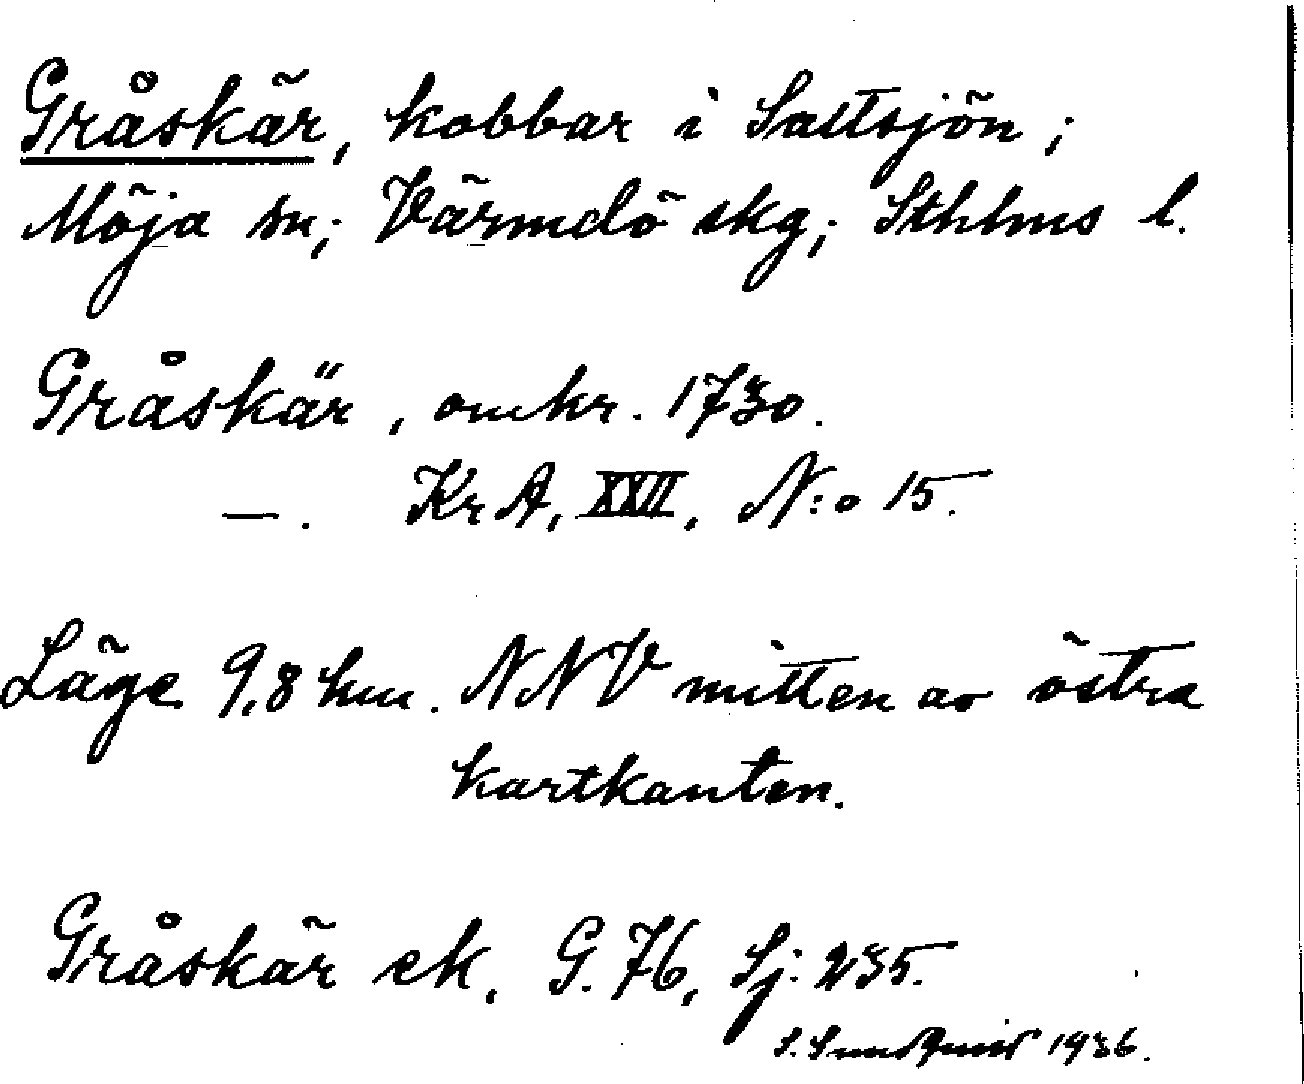 Gråskär, kobbar i Saltsjön;
Möja sn; Värmdö skg; Sthlms l.
Gråskär, omkr. 1730.
—. KrA, XXII, N:o 15.
Läge 9,8 km. NNV mitten av östra
kartkanten.
Gråskär ek, G. 76, Sj: 235.
S. Sundquist 1936.